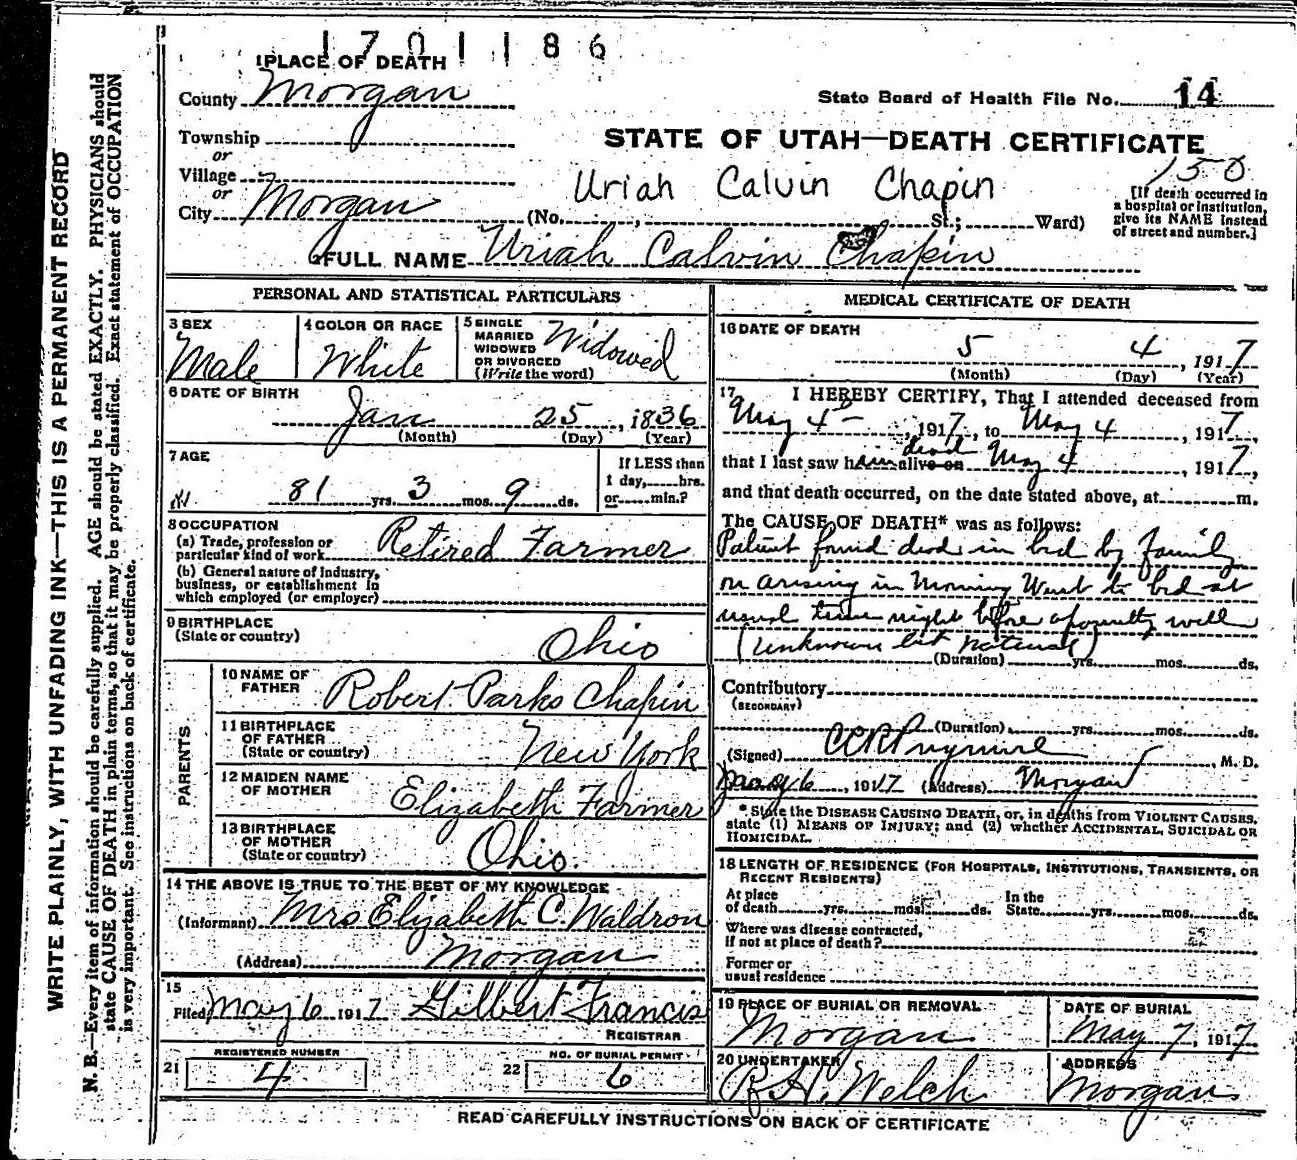 1701186
1 PLACE OF DEATH
County Morgan
State Board of Health File No. 14
Township
or
STATE OF UTAH—DEATH CERTIFICATE
Village
or
150
City Morgan (No. , St.; Ward)
Uriah Calvin Chapin
[If death occurred in
a hospital or institution,
give its NAME instead
of street and number.]
FULL NAME Uriah Calvin Chapin
PERSONAL AND STATISTICAL PARTICULARS
3 SEX
Male
4 COLOR OR RACE
White
5 SINGLE
MARRIED
WIDOWED
OR DIVORCED
(Write the word)
Widowed
6 DATE OF BIRTH
Jan 25, 1836
(Month) (Day) (Year)
7 AGE
81 yrs. 3 mos. 9 ds.
If LESS than
1 day, hrs.
or min.?
8 OCCUPATION
(a) Trade, profession or
particular kind of work Retired Farmer
(b) General nature of Industry,
business, or establishment in
which employed (or employer)
9 BIRTHPLACE
(State or country)
Ohio
PARENTS
10 NAME OF
FATHER Robert Parks Chapin
11 BIRTHPLACE
OF FATHER
(State or country) New York
12 MAIDEN NAME
OF MOTHER Elizabeth Farmer
13 BIRTHPLACE
OF MOTHER
(State or country) Ohio.
14 THE ABOVE IS TRUE TO THE BEST OF MY KNOWLEDGE
(Informant) Mrs Elizabeth C. Waldron
(Address) Morgan
15
Filed May 6 1917 Gilbert Francis
REGISTRAR
REGISTERED NUMBER
21 4
NO. OF BURIAL PERMIT
22 6
MEDICAL CERTIFICATE OF DEATH
16 DATE OF DEATH
5 4, 1917
(Month) (Day) (Year)
17 I HEREBY CERTIFY, That I attended deceased from
May 4, 1917, to May 4, 1917,
dead
that I last saw him alive on May 4, 1917,
and that death occurred, on the date stated above, at m.
The CAUSE OF DEATH* was as follows:
Patient found dead in bed by family
on arising in Morning Went to bed at
usual time night before apparently well
(unknown but natural)
(Duration) yrs. mos. ds.
Contributory
(SECONDARY)
(Duration) yrs. mos. ds.
(Signed) M. D.
May 6, 1917 (Address) Morgan
*State the DISEASE CAUSING DEATH, or, in deaths from VIOLENT CAUSES,
state (1) MEANS OF INJURY; and (2) whether ACCIDENTAL, SUICIDAL OR
HOMICIDAL.
18 LENGTH OF RESIDENCE (FOR HOSPITALS, INSTITUTIONS, TRANSIENTS, OR
RECENT RESIDENTS)
At place
of death yrs. mos. ds.
In the
State yrs. mos. ds.
Where was disease contracted,
if not at place of death?
Former or
usual residence
19 PLACE OF BURIAL OR REMOVAL
Morgan
DATE OF BURIAL
May 7, 1917
20 UNDERTAKER
R H. Welch
ADDRESS
Morgan
READ CAREFULLY INSTRUCTIONS ON BACK OF CERTIFICATE
WRITE PLAINLY, WITH UNFADING INK—THIS IS A PERMANENT RECORD
N. B.—Every item of information should be carefully supplied. AGE should be stated EXACTLY. PHYSICIANS should
state CAUSE OF DEATH in plain terms, so that it may be properly classified. Exact statement of OCCUPATION
is very important. See instructions on back of certificate.